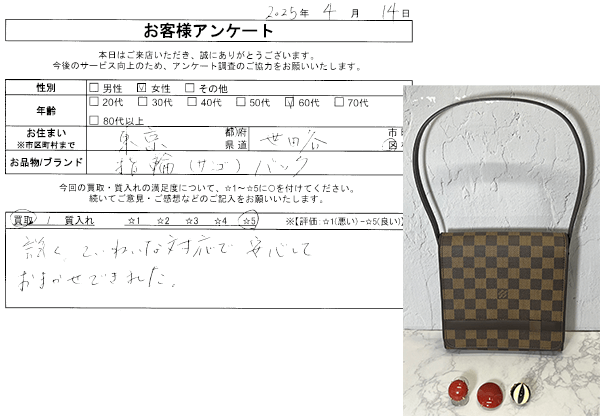 2025年 4月 14日
お客様アンケート
本日はご来店いただき、誠にありがとうございます。
今後のサービス向上のため、アンケート調査のご協力をお願いいたします。
性別 □ 男性 ☑ 女性 □ その他
年齢 □ 20代 □ 30代 □ 40代 □ 50代 ☑ 60代 □ 70代
□ 80代以上
お住まい
※市区町村まで
東京 都 府 県 道 世田谷 市 区
お品物/ブランド 指輪(サンゴ) バック
今回の買取・質入れの満足度について、☆1～☆5に○を付けてください。
続いてご意見・ご感想などのご記入をお願いいたします。
買取 / 質入れ ☆1 ☆2 ☆3 ☆4 ☆5 ※【評価:☆1(悪い)-☆5(良い)】
ていねいな対応で安心して
おまかせできました。